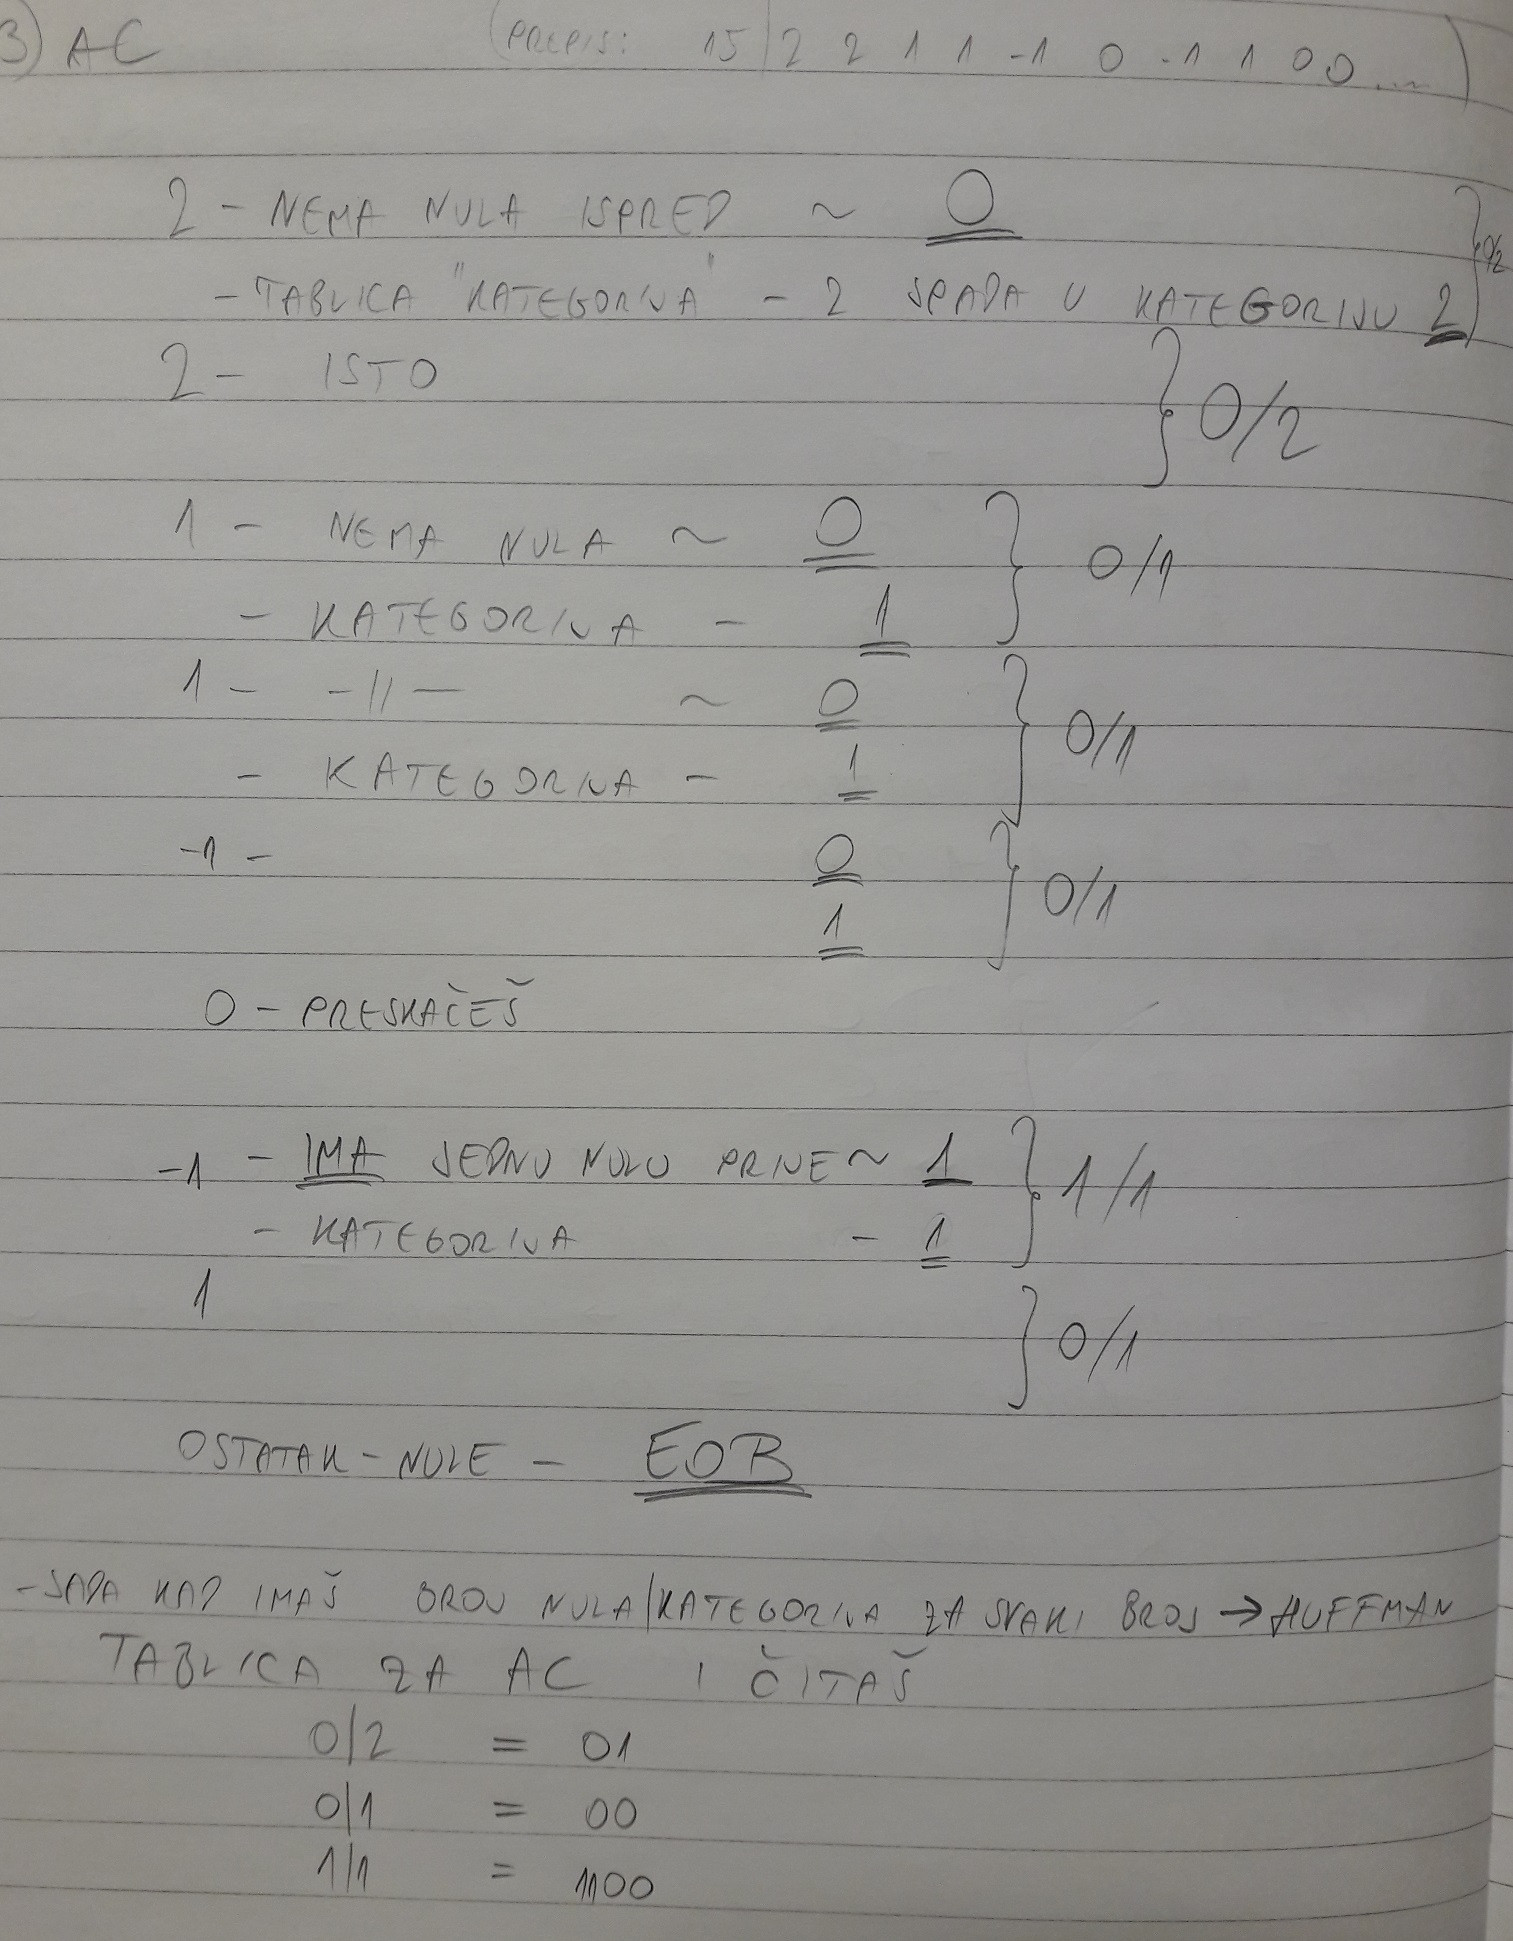 3) AC (PREPIS: 15 | 2 2 1 1 -1 0 -1 1 0 0 ...)
2 - NEMA NULA ISPRED ~ 0
- TABLICA "KATEGORIJA" - 2 SPADA U KATEGORIJU 2 } 0/2
2 - ISTO } 0/2
1 - NEMA NULA ~ 0
- KATEGORIJA - 1 } 0/1
1 - -||- ~ 0
- KATEGORIJA - 1 } 0/1
-1 - 0
1 } 0/1
0 - PRESKAČEŠ
-1 - IMA JEDNU NULU PRIJE ~ 1
- KATEGORIJA - 1 } 1/1
1 } 0/1
OSTATAK - NULE - EOB
- SADA KAD IMAŠ BROJ NULA/KATEGORIJA ZA SVAKI BROJ → HUFFMAN
TABLICA ZA AC I ČITAŠ
0/2 = 01
0/1 = 00
1/1 = 1100